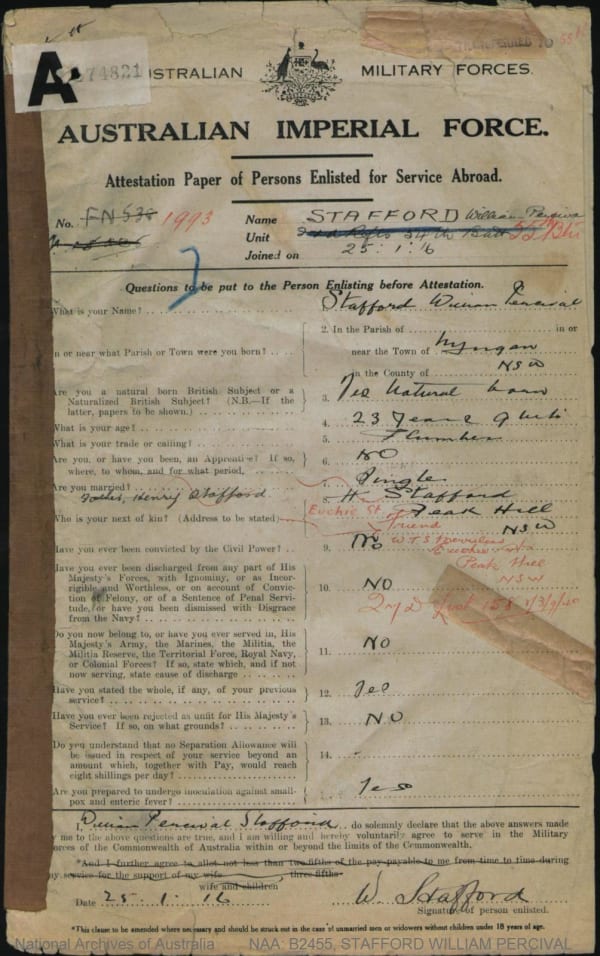 A 74821
AUSTRALIAN MILITARY FORCES.
AUSTRALIAN IMPERIAL FORCE.
Attestation Paper of Persons Enlisted for Service Abroad.
No. FN538 1993 Name STAFFORD William Percival
Unit 54th Batt 55th Btn
Joined on 25.1.16
Questions to be put to the Person Enlisting before Attestation.
What is your Name? Stafford William Percival
In or near what Parish or Town were you born? 2. In the Parish of in or
near the Town of Nyngan
in the County of NSW
Are you a natural born British Subject or a
Naturalized British Subject? (N.B.—If the
latter, papers to be shown.) 3. Yes Natural born
What is your age? 4. 23 years 9 mts
What is your trade or calling? 5. Plumber
Are you, or have you been, an Apprentice? If so,
where, to whom, and for what period. 6. NO
Are you married? 7. Single
Father, Henry Stafford 8. H. Stafford
Who is your next of kin? (Address to be stated) Euchie St. Peak Hill
friend NSW
Have you ever been convicted by the Civil Power? 9. No W.T.S
Peak Hill
NSW
Have you ever been discharged from any part of His
Majesty's Forces, with Ignominy, or as Incor-
rigible and Worthless, or on account of Convic-
tion of Felony, or of a Sentence of Penal Servi-
tude, or have you been dismissed with Disgrace
from the Navy? 10. NO
Do you now belong to, or have you ever served in, His
Majesty's Army, the Marines, the Militia, the
Militia Reserve, the Territorial Force, Royal Navy,
or Colonial Forces? If so, state which, and if not
now serving, state cause of discharge 11. NO
Have you stated the whole, if any, of your previous
service? 12. Yes
Have you ever been rejected as unfit for His Majesty's
Service? If so, on what grounds? 13. NO
Do you understand that no Separation Allowance will
be issued in respect of your service beyond an
amount which, together with Pay, would reach
eight shillings per day? 14. -
Are you prepared to undergo inoculation against small-
pox and enteric fever? Yes
I, William Percival Stafford do solemnly declare that the above answers made
by me to the above questions are true, and I am willing and hereby voluntarily agree to serve in the Military
Forces of the Commonwealth of Australia within or beyond the limits of the Commonwealth.
*And I further agree to allot not less than two-fifths of the pay payable to me from time to time during
my service for the support of my wife three-fifths
wife and children
Date 25.1.16 W. Stafford
Signature of person enlisted.
*This clause to be amended where necessary and should be struck out in the case of unmarried men or widowers without children under 18 years of age.
National Archives of Australia NAA: B2455, STAFFORD WILLIAM PERCIVAL